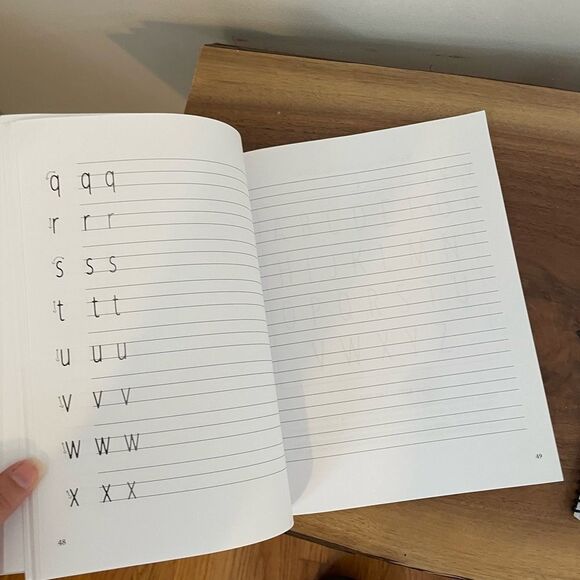 q q q
r r r
s s s
t t t
u u u
v v v
w w w
x x x
48
49